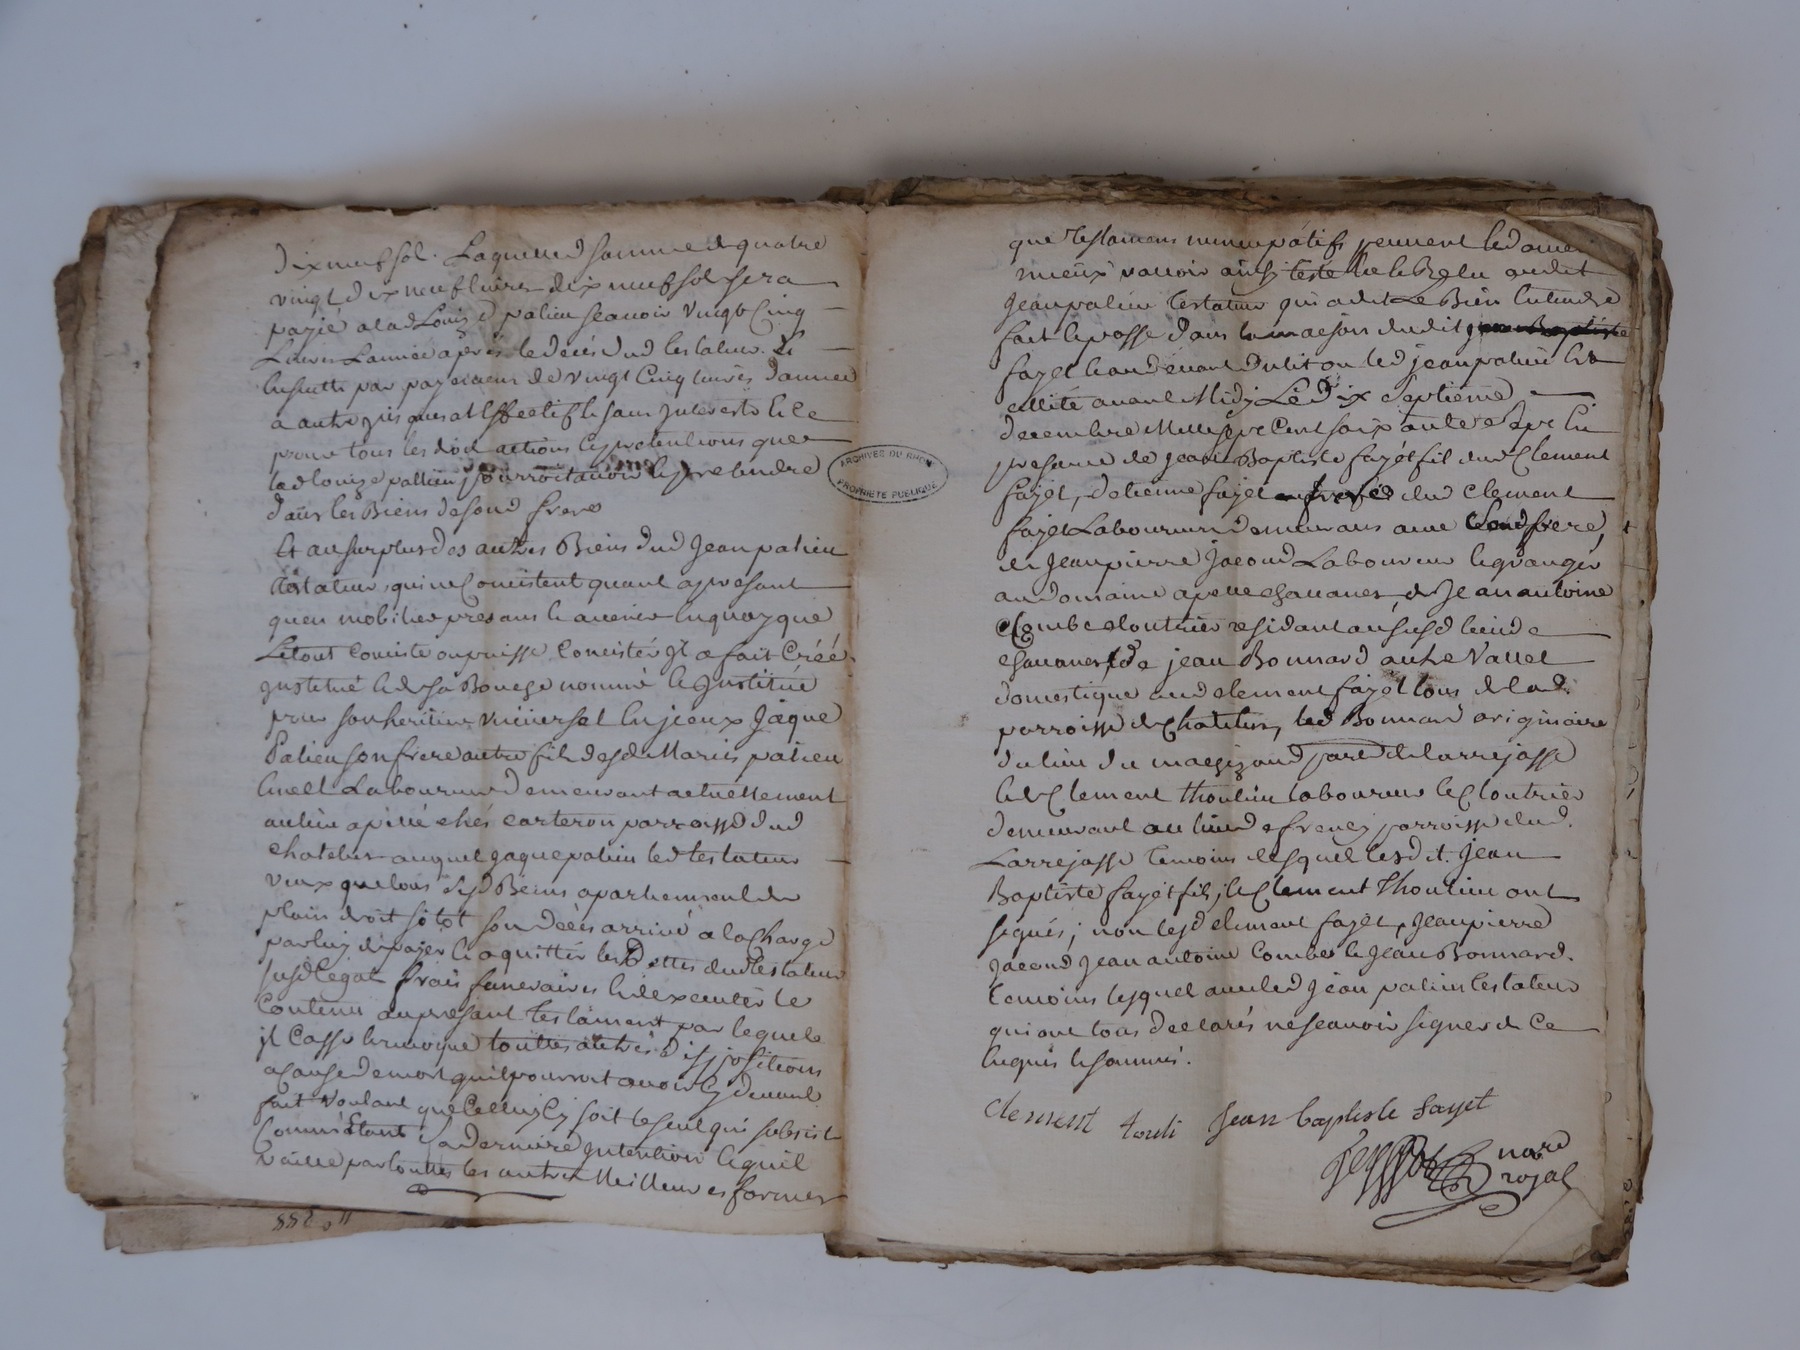 dixneuf sol. Laquelled somme de quatre
vingt dix neuf livres dix neuf sols sera
payié a lad Louize palieu scavoir vingt Cinq
Livres Lannée aprés le decés dud testateur. Et
Ensuitte par payement de vingt Cinq livres dannee
a autre jusques a Effectif et sans Interests Et ce
pour tous les droits actions et pretentions que
lad louize pallieu pourroit avoir et pretendre
dans les Biens de sond frere
Et au surplus des autres Biens dud Jean palieu
testateur, qui ne Concistent quant apresant
quen mobilier presans et avenir En quoy que
Letout Conciste ou puisse Concister Jl a fait Créé
Institué et de sa Bouche nommé et Institue
pour son heritier universel Enjeux Jaque
Palieu son frere autre fils desd Mariés palieu
laboureur demeurant actuellement
au lieu apellé chés carteron parroisse dud
chatelus auquel Jaque palieu led testateur
veux que tous sesd Biens apartiennent de
plain droit sitot son decés arrivé a la Charge
par luy de payer et aquitter les Dettes dud testateur
susd legat frais funeraires et dexecuter le
Contenu au presant testament par lequel
jl Casse et revoque touttes autres dispositions
acause de mort quil pourroit avoir cy devant
fait voulant que Celluy Cy soit le seul qui subsiste
Comme Etant sa derniere Intention et quil
vaille par touttes les autres Meilleures formes
ARCHIVES DU RHONE
PROPRIETE PUBLIQUE
que testamens nuncupatifs peuvent et doivent
mieux valloir ainsi testé leu et Releu audit
Jean palieu testateur qui a dit Le Bien Entendre
fait et passé dans la maison dudit
fayet et au devant du lit ou led jean palieu Est
allité avant Midy Le Dix Septieme
decembre Mille Sept Cent soixante et Sept En
presance de Jean Baptiste fayet fils dud Clement
fayet, detienne fayet frere dud Clement
fayet Laboureurs demeurans avec sond frere,
de Jean pierre Jacoud Laboureur et granger
au domaine apellé chavanes, de Jean antoine
Combe cloutrier residant au susd lieu de
chavanes, de jean Bonnard autre Vallet
domestique aud clement fayet tous de lad.
parroisse de Chatelus, led Bonnard originaire
du lieu du par de larrejasse
et de Clement thoulieu laboureur et Cloutrier
demeurant au lieu de parroisse dud.
Larrejasse temoins desquel lesd st. Jean
Baptiste fayet fils, et Clement Thoulieu ont
signés, non lesd clement fayet, Jean pierre
Jacoud Jean antoine Combe et Jean Bonnard
temoins lesquel avec led Jean palieu testateur
qui ont tous declarés ne scavoir signer de Ce
Enquis et sommé.
clement touli Jean baptiste fayet
nore
royal